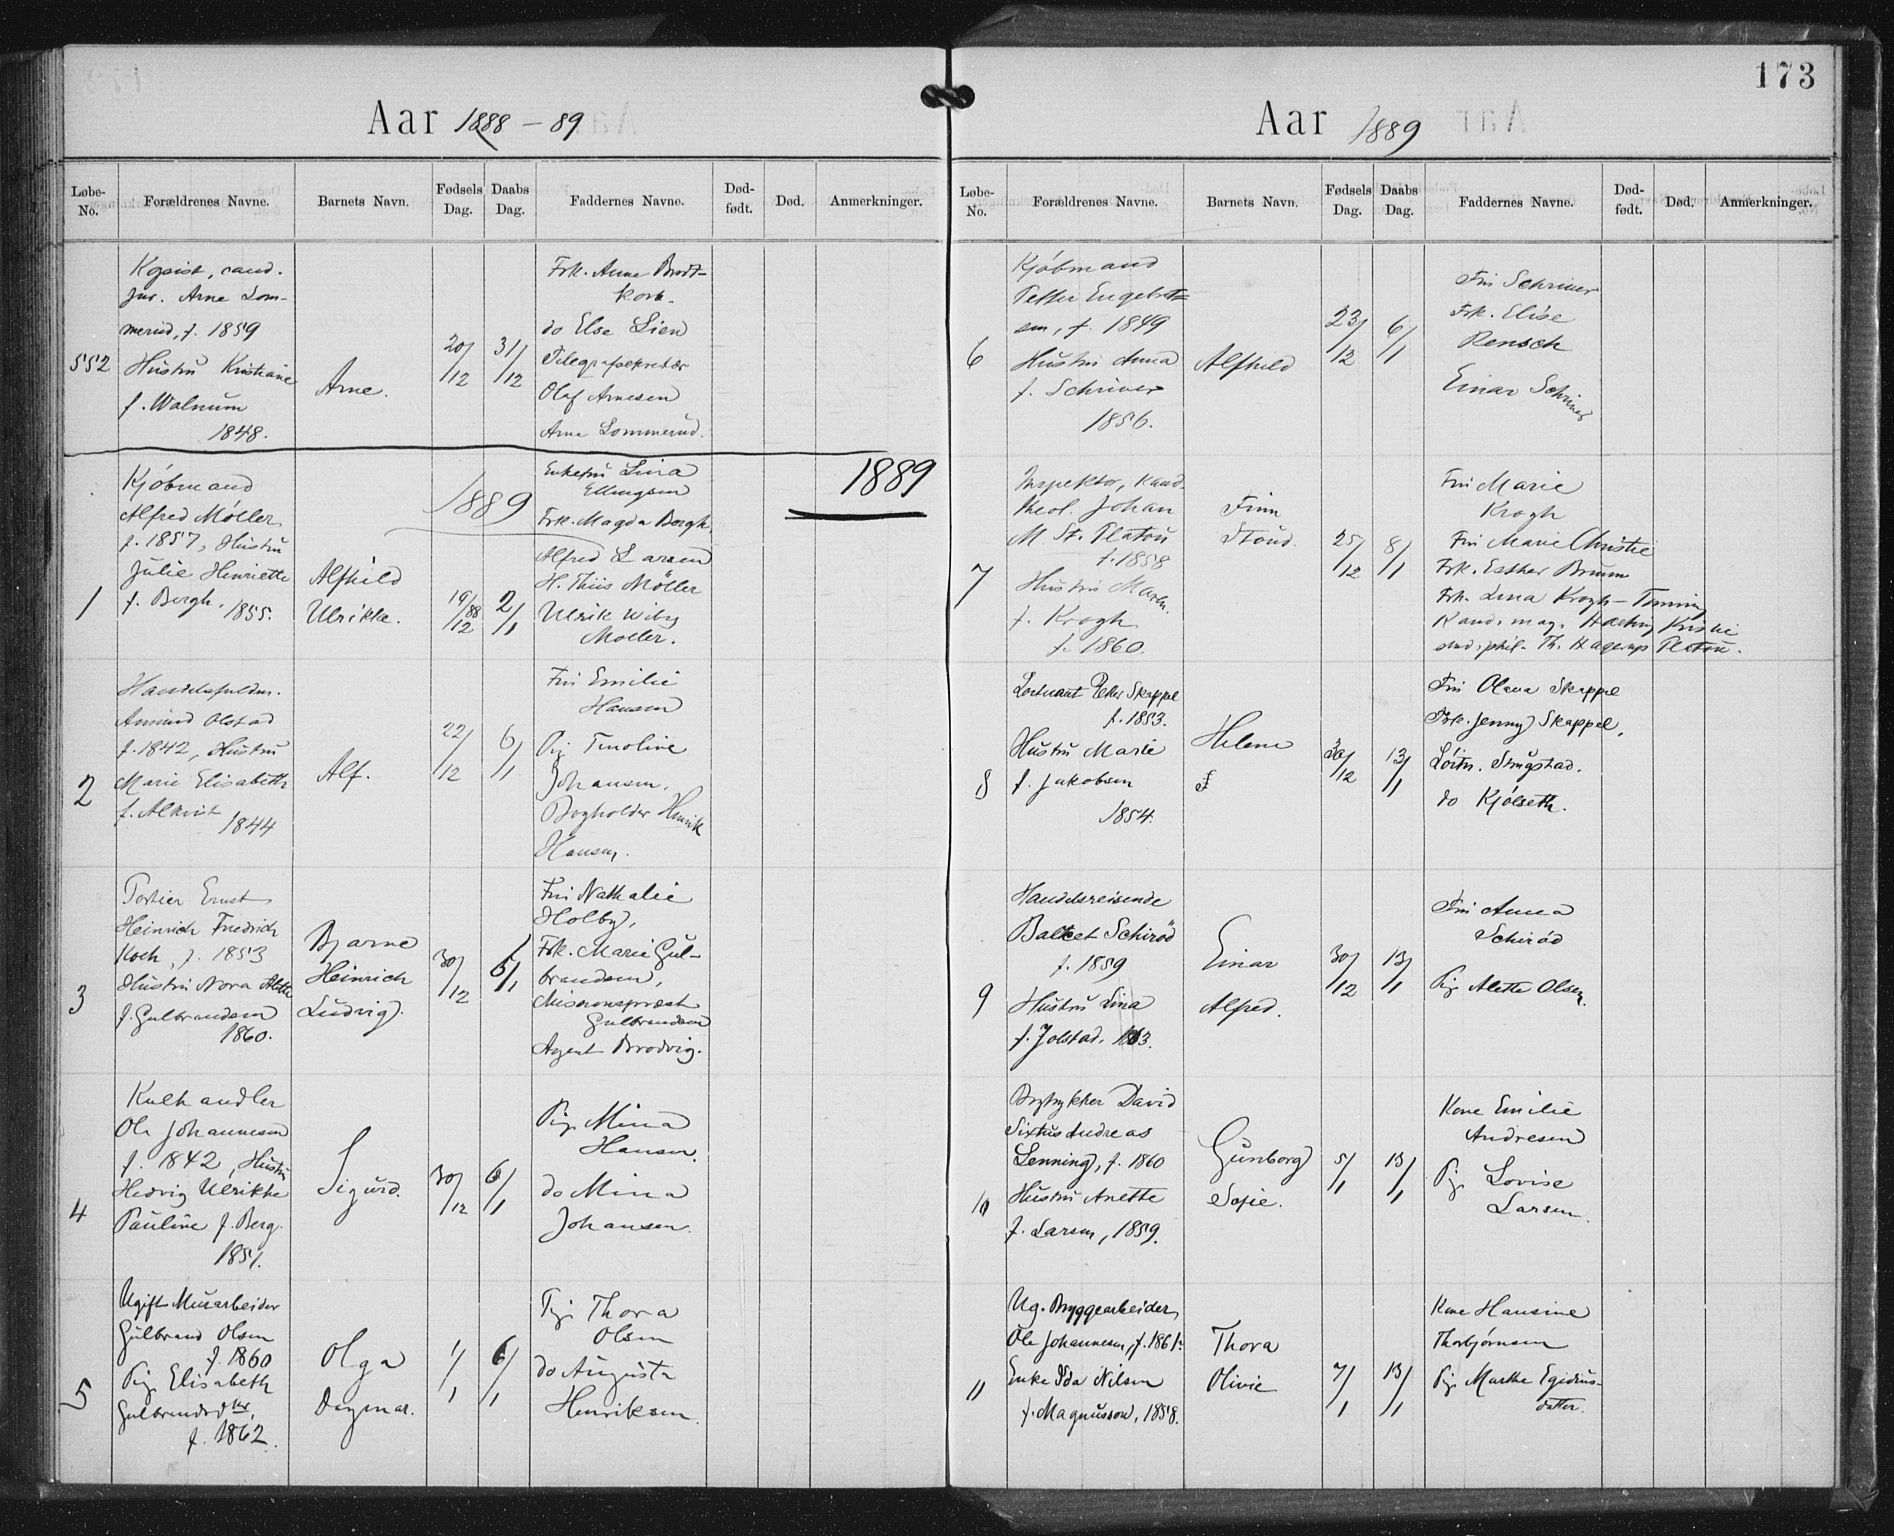 173
Aar 1888 - 89
Løbe-No.
Forældrenes Navne.
Barnets Navn.
Fødsels Dag.
Daabs Dag.
Faddernes Navne.
Død-født.
Død.
Anmerkninger.
552
Kopist, cand.
jur. Arne Lom-
merud, f. 1859
Hustru Kristiane
f. Walnum
1848.
Arne.
20/12
31/12
Frk. Anne Brodt-
korb.
do Else Lien
Telegrafsekretær
Olaf Arnesen
Arne Lommerud.
1889
1889
1
Kjøbmand
Alfred Møller
f. 1857, Hustru
Julie Henriette
f. Bergh, 1855.
Alfhild
Ulrikke.
19/12 88
2/1
Enkefru Lina
Ellingsen
Frk. Magda Bergh,
Alfred Larsen
H. Thiis Møller
Ulrik Wiby
Møller.
2
Amund Olstad
f. 1842, Hustru
Marie Elisabeth
1844
Alf.
22/12
6/1
Fru Emilie
Hansen
Pig. Tinoline
Johansen,
Bogholder Henrik
Hansen.
3
Portier Ernst
Heinrich Friedrich
Koch, f. 1853
Hustru Nora Alette
f. Gulbrandsen
1860.
Bjarne
Heinrich
Ludvig.
30/12
6/1
Fru Nathalie
Holby,
Frk. Marie Gul-
brandsen,
Missionsprest
Gulbrandsen
Agent Brodvig.
4
Kulhandler
Ole Johannesen
f. 1842, Hustru
Hedvig Ulrikke
Pauline f. Berg.
1851.
Sigurd.
30/12
6/1
Pig. Mina
Hansen.
do Mina
Johansen.
5
Ugift Murarbeider
Gulbrand Olsen
f. 1860
Pig. Elisabeth
Gulbrandsdtr,
f. 1862.
Olga
Dagmar.
1/1
6/1
Pig. Thora
Olsen
do Augusta
Henriksen.
Aar 1889
Løbe-No.
Forældrenes Navne.
Barnets Navn.
Fødsels Dag.
Daabs Dag.
Faddernes Navne.
Død-født.
Død.
Anmerkninger.
6
Kjøbmand
Petter Engebret-
sen, f. 1849
Hustru Anna
f. Schriver
1856.
Alfhild
23/12
6/1
Fru Schriver
Frk. Elise
Rensch
Einar Schriver
7
Inspektør, kand.
theol. Johan
M. St. Platou
f. 1858
Hustru Maren
f. Krogh
f. 1860.
Finn
Stoud.
25/12
8/1
Fru Marie
Krogh
Fru Marie Christie
Frk. Esther Bruun
Frk. Lina Krogh-Tonning
Kand. mag. Hartvig Kristie
stud. phil. Th. Hagerup Platou.
8
Løitnant Peter Skappel
f. 1853.
Hustru Marie
f. Jakobsen
1854.
Helene
30/12
13/1
Fru Olava Skappel
Frk. Jenny Skappel,
Løitn. Stugstad.
do Kjølseth.
9
Handelsreisende
Schirød
f. 1859
Hustru Lina
f. Jolstad, 1863.
Einar
Alfred.
30/12
13/1
Fru Anna
Schirød
Pig. Alette Olsen.
10
Bogtrykker David
Sixtus Andreas
Lenning, f. 1860
Hustru Anette
f. Larsen, 1859.
Gunborg
Sofie.
5/1
13/1
Kone Emilie
Andresen
Pig. Lovise
Larsen.
11
Ug. Bryggearbeider
Ole Johannesen, f. 1861.
Enke Ida Nilsen
f. Magnusson, 1858.
Thora
Olivie
7/1
13/1
Kone Hansine
Thorbjørnsen
Pig. Marthe Egidius-
datter.